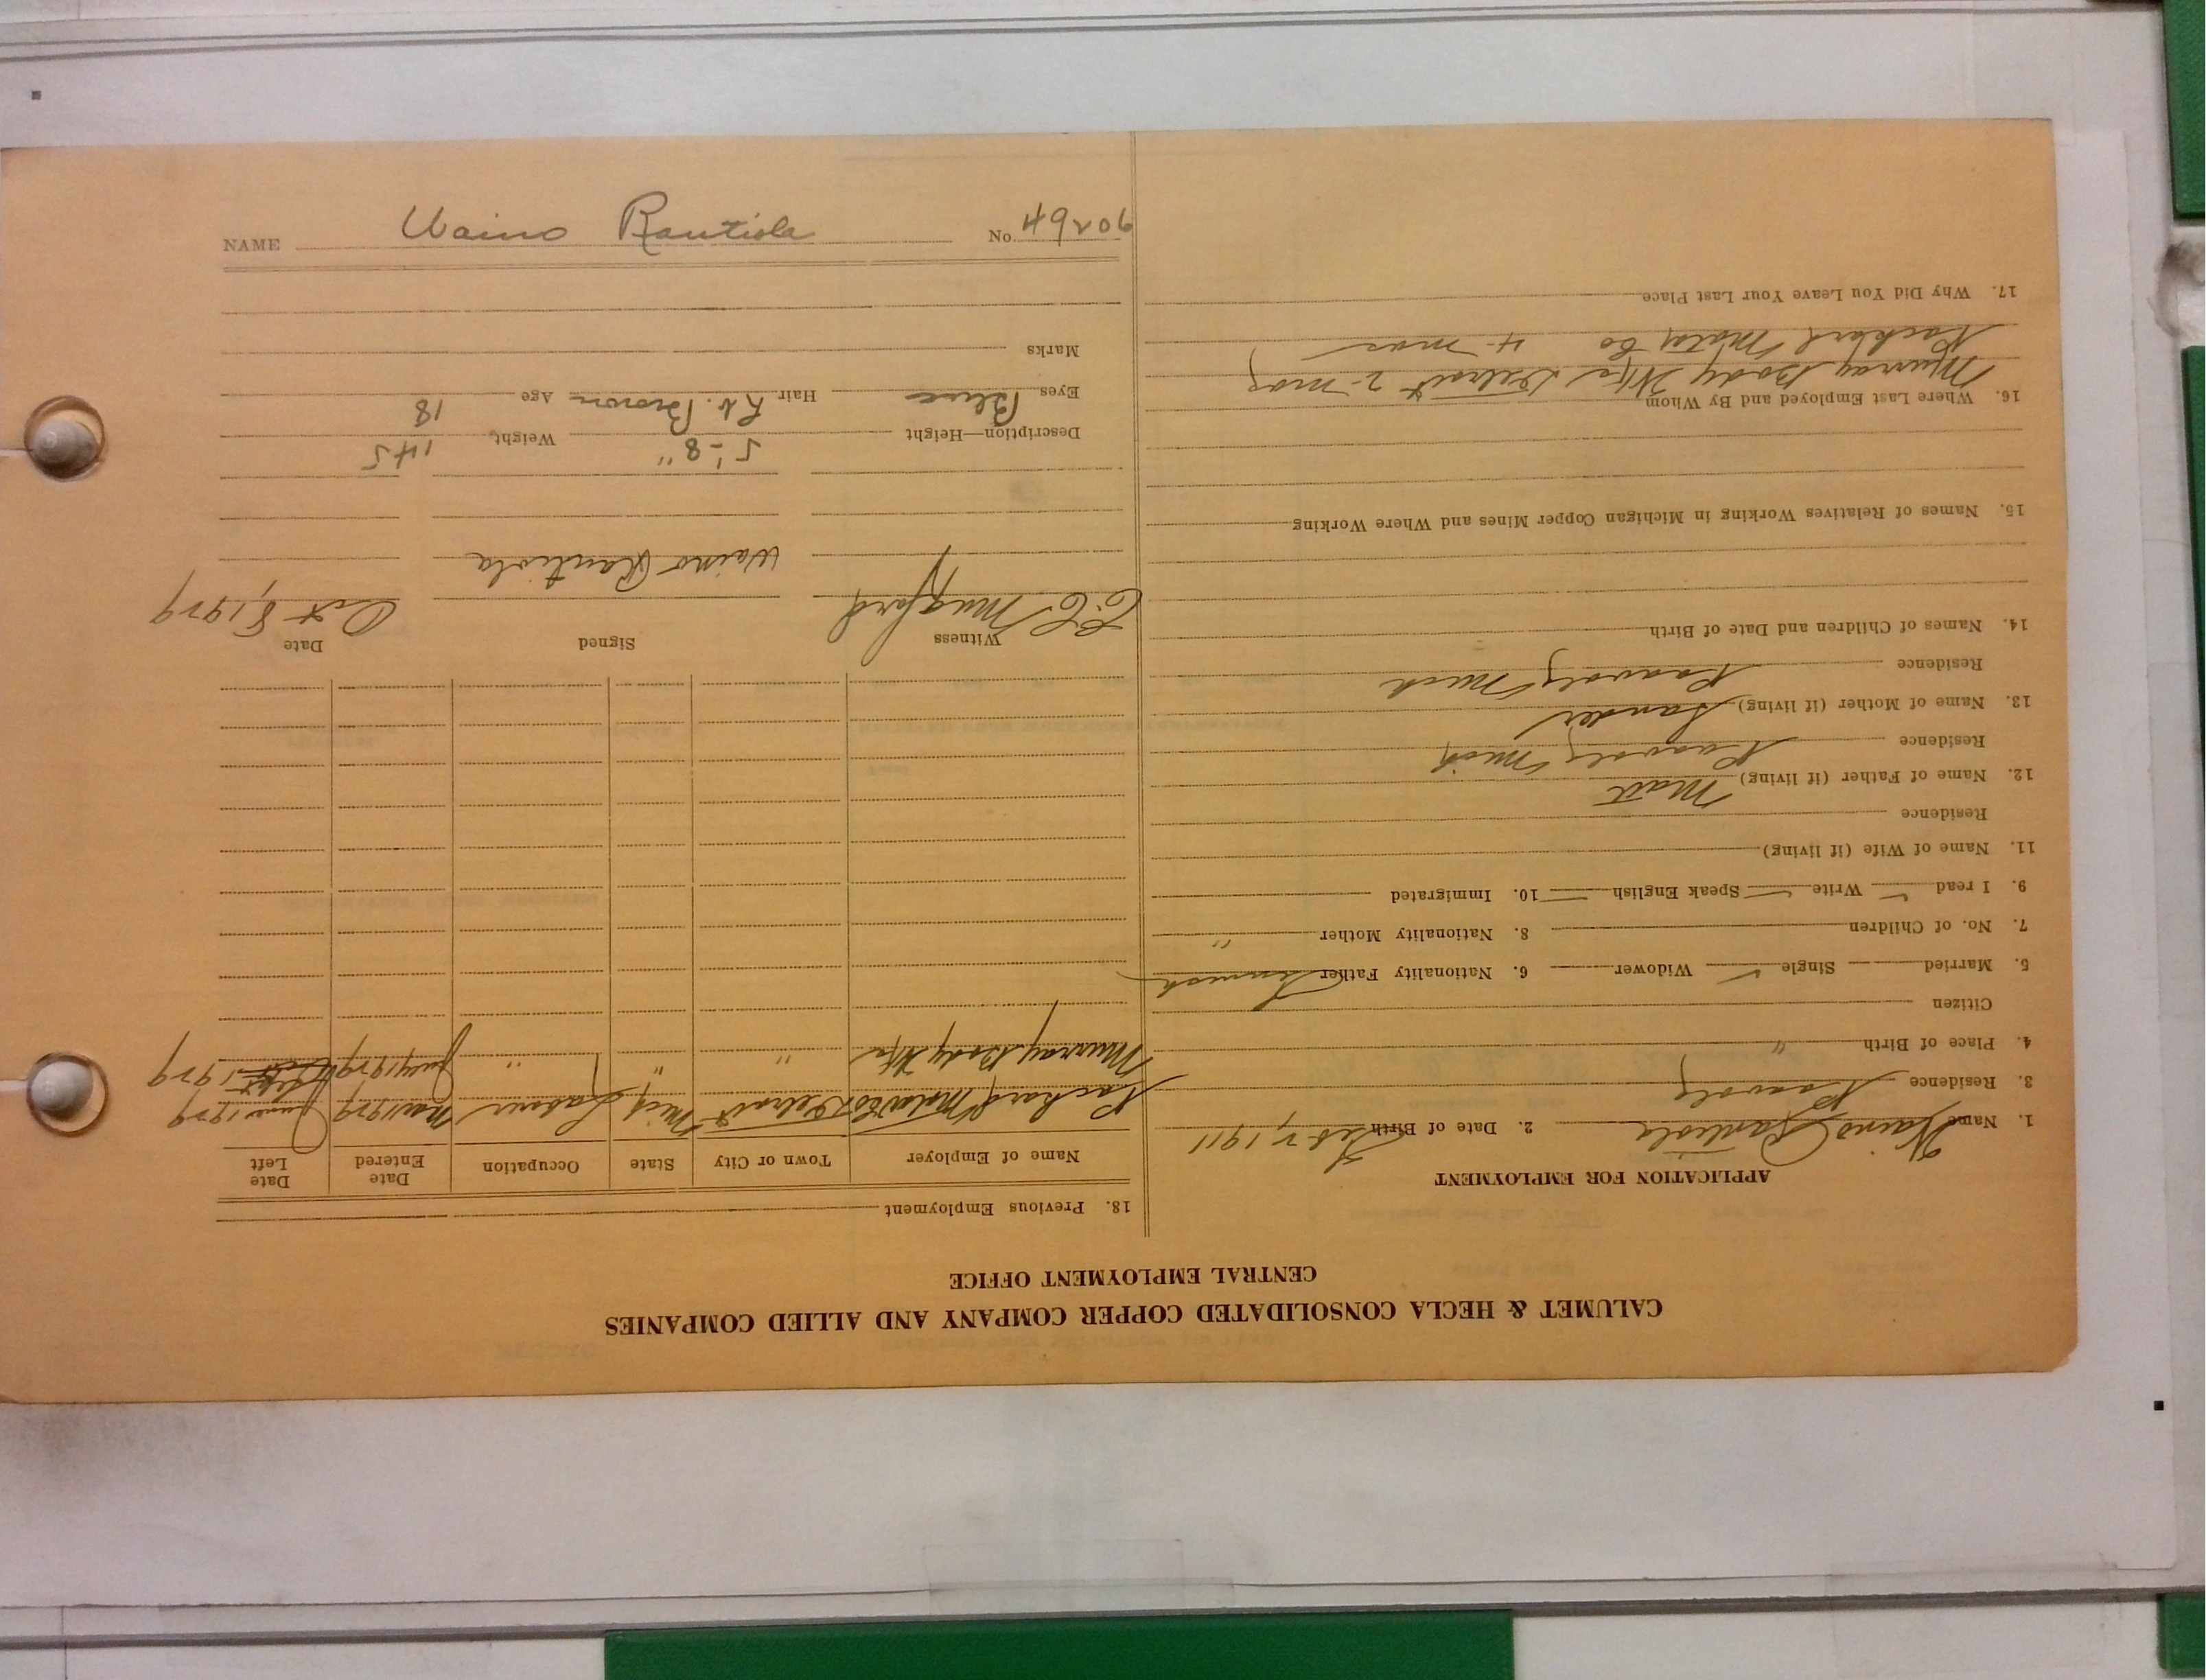 CALUMET & HECLA CONSOLIDATED COPPER COMPANY AND ALLIED COMPANIES
CENTRAL EMPLOYMENT OFFICE
APPLICATION FOR EMPLOYMENT
1. Name Waino Rautiola 2. Date of Birth Feb 2, 1911
3. Residence Paavola
4. Place of Birth "
Citizen
5. Married Single ✓ Widower 6. Nationality Father Finnish
7. No. of Children 8. Nationality Mother "
9. I read ✓ Write ✓ Speak English 10. Immigrated
11. Name of Wife (if living)
Residence
12. Name of Father (if living) Matt
Residence Paavola, Mich
13. Name of Mother (if living) Sander
Residence Paavola, Mich
14. Names of Children and Date of Birth
15. Names of Relatives Working in Michigan Copper Mines and Where Working
16. Where Last Employed and By Whom
Murray Body Detroit 2-mos
Packard Motor Co 4-mos
17. Why Did You Leave Your Last Place
18. Previous Employment
Name of Employer Town or City State Occupation Date Entered Date Left
Packard Motor Co Detroit Mich Laborer Mar 1929 June 1929
Murray Body " " " July 1929 Sept 1929
Witness Signed Date
C.C. Mugford Waino Rautiola Oct 8, 1929
Description—Height 5'-8" Weight 145
Eyes Blue Hair Lt. Brown Age 18
Marks
NAME Waino Rautiola No. 49206